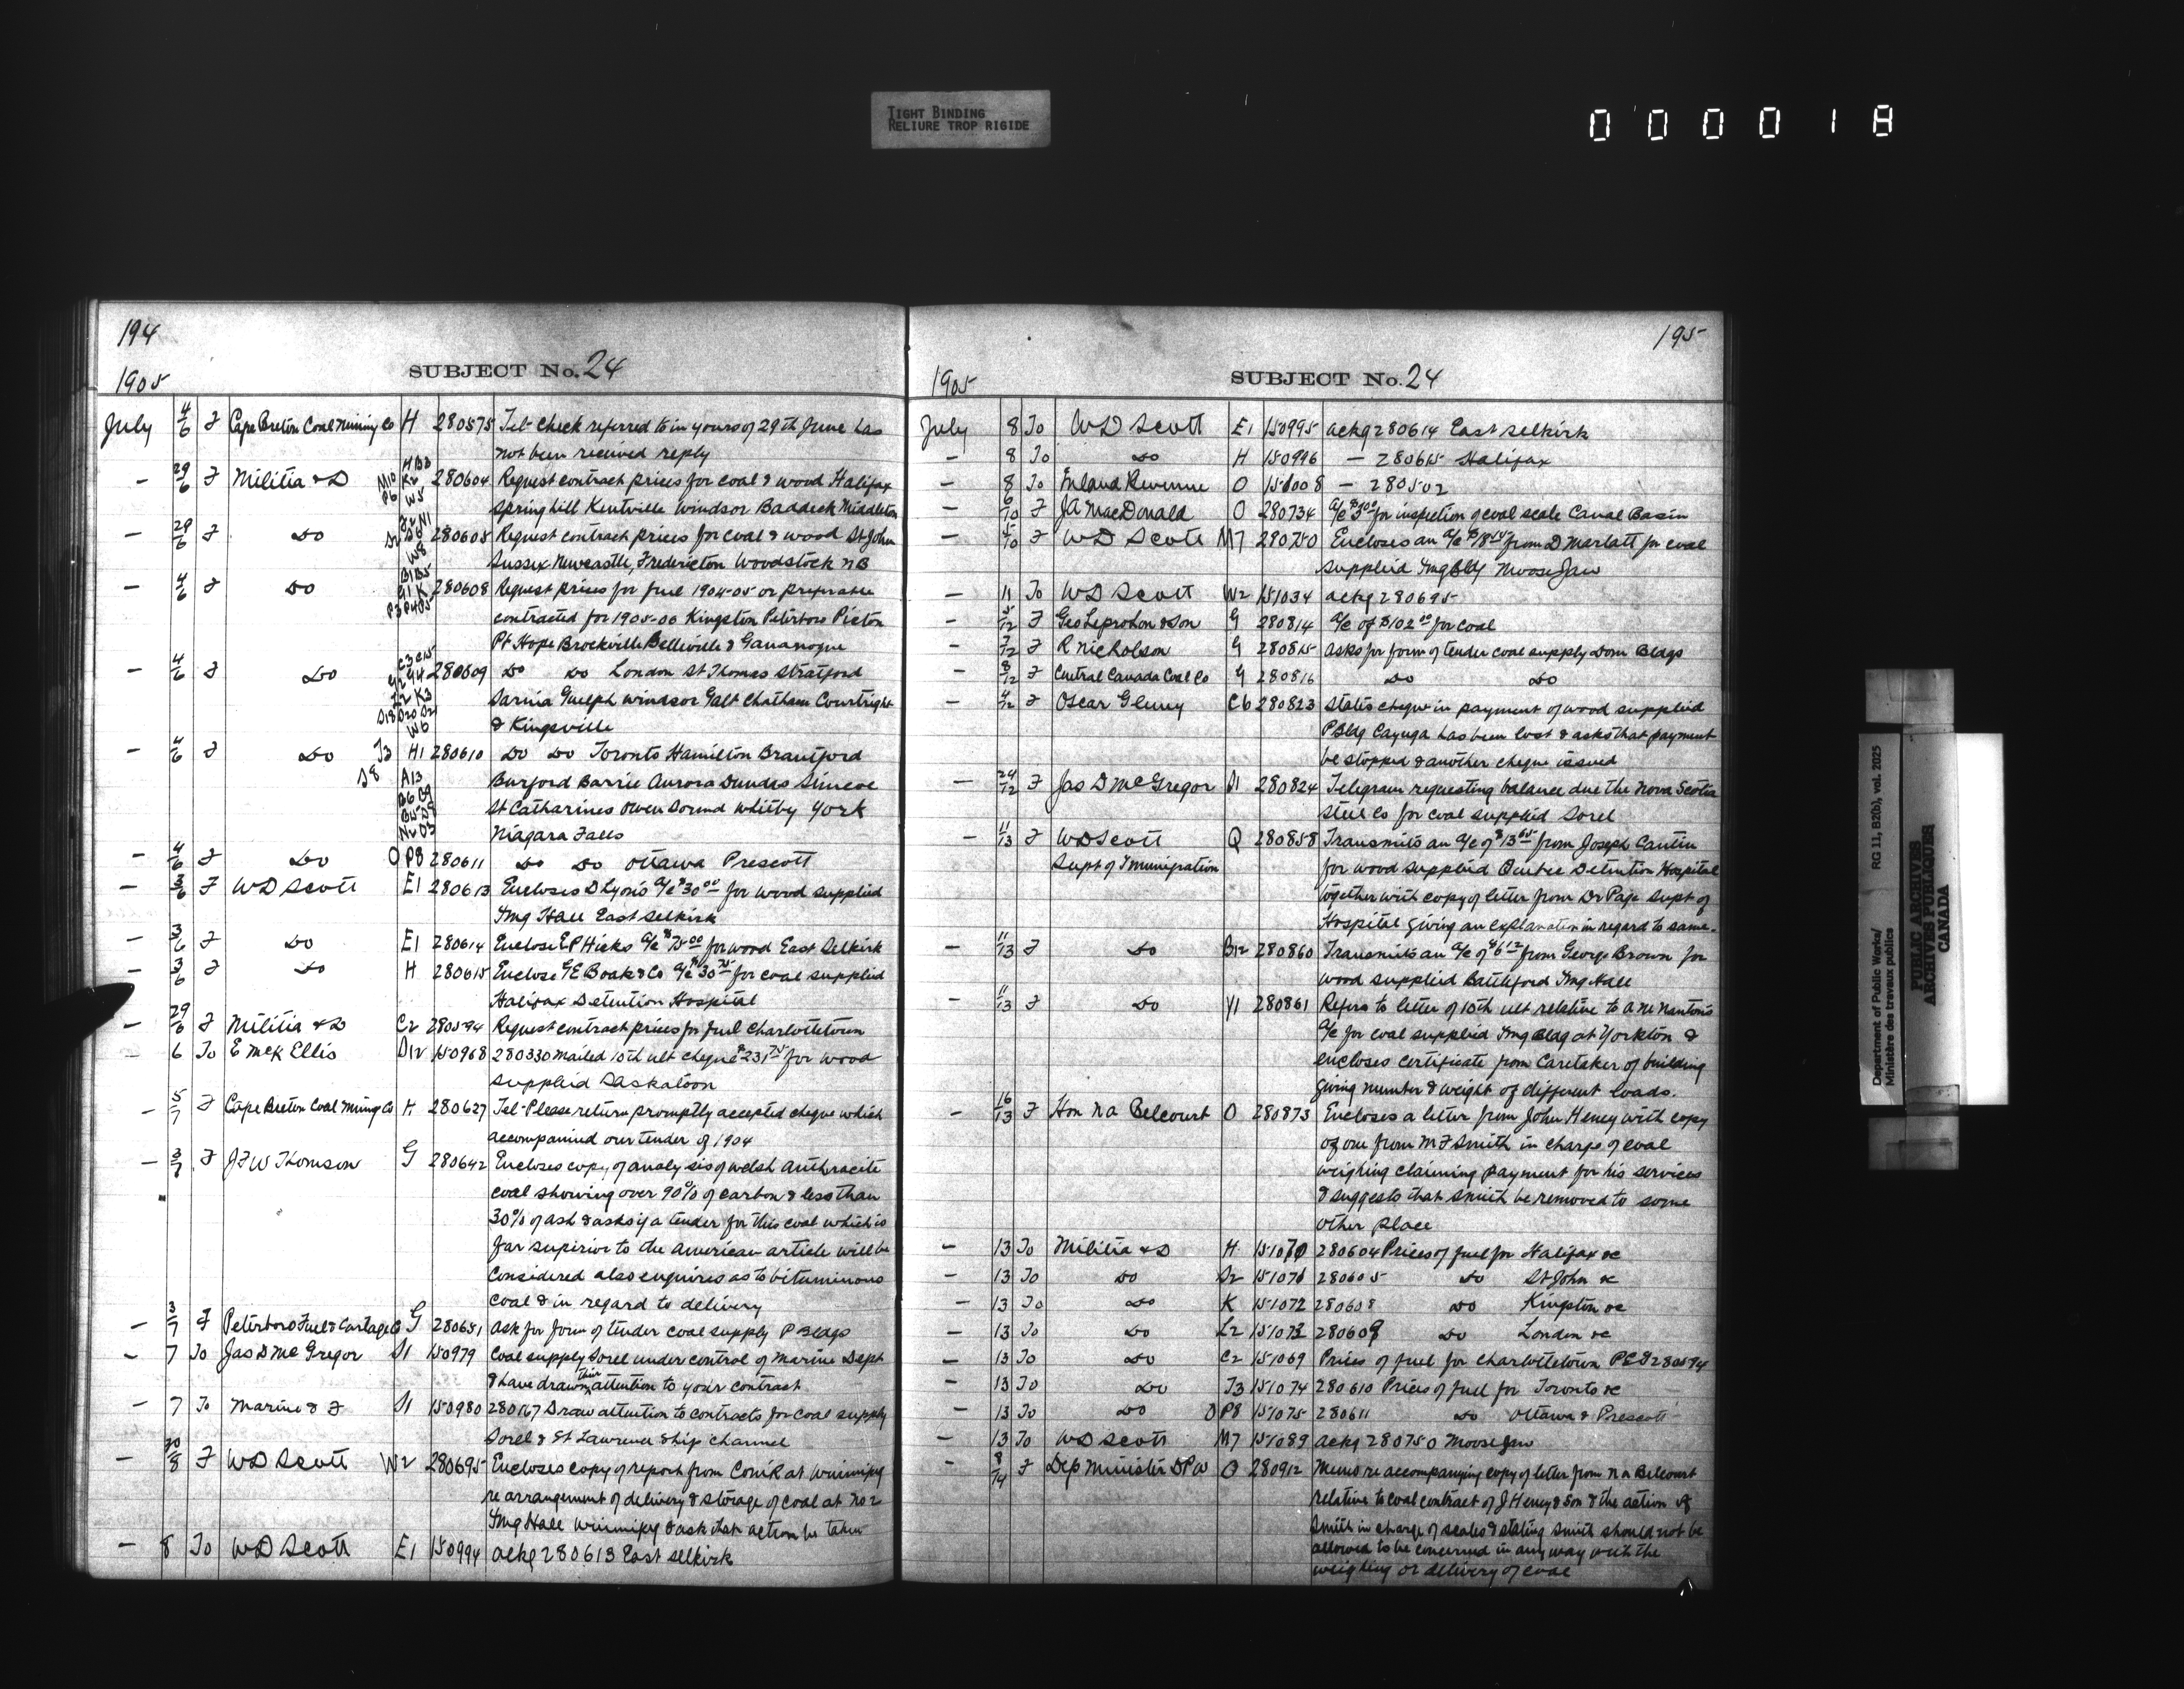 TIGHT BINDING
RELIURE TROP RIGIDE
0 0 0 0 1 8
194
SUBJECT No. 24
1905
July 4/6 F Cape Breton Coal Mining Co H 280575 Tel- Check referred to in yours of 29th June has
not been received reply
— 29/6 F Militia & D M10 P6 H B3 K2 W5 280604 Request contract prices for coal & wood Halifax
Springhill Kentville Windsor Baddeck Middleton
— 29/6 F Do 280605 Request contract prices for coal & wood St John
W8 Sussex Newcastle, Fredericton Woodstock NB
— 4/6 F Do B1 B5 G1 K P3 P4 O5 280608 Request prices for fuel 1904-05 or preferable
contracted for 1905-06 Kingston Peterboro Picton
Pt Hope Brockville Belleville & Gananoque
— 4/6 F Do C3 C15 G2 G4 280609 Do Do London St Thomas Stratford
K3 D18 D20 D21 Sarnia Guelph Windsor Galt Chatham Courtright
W6 & Kingsville
— 4/6 F Do T3 H1 280610 Do Do Toronto Hamilton Brantford
S8 A13 Burford Barrie Aurora Dundas Simcoe
B6 C9 St Catharines Owen Sound Whitby York
N2 O3 Niagara Falls
— 4/6 F Do O P8 280611 Do Do Ottawa Prescott
— 3/6 F WD Scott E1 280613 Encloses D Lyons a/c $30.00 for wood supplied
Img Hall East Selkirk
— 3/6 F Do E1 280614 Enclose E P Hicks a/c $75.00 for wood East Selkirk
— 3/6 F Do H 280615 Enclose G E Boak & Co a/c $30.75 for coal supplied
Halifax Detention Hospital
— 29/6 F Militia & D C2 280594 Request contract prices for fuel Charlottetown
— 6 To E McK Ellis D12 150968 280330 mailed 10th ult cheque $231.75 for wood
supplied Saskatoon
— 5/7 F Cape Breton Coal Ming Co H 280627 Tel- Please return promptly accepted cheque which
accompanied our tender of 1904
— 3/7 F J F W Thomson G 280642 Encloses copy of analysis of Welsh Anthracite
coal showing over 90% of carbon & less than
30% of ash & asks if a tender for this coal which is
far superior to the American article will be
considered also enquires as to bituminous
coal & in regard to delivery
— 3/7 F Peterboro Fuel & Cartage Co G 280651 Ask for form of tender coal supply P Bldgs
— 7 To Jas D McGregor S1 150979 Coal supply Sorel under control of Marine Dept
& have drawn their attention to your contract
— 7 To Marine & F S1 150980 280167 Draw attention to contracts for coal supply
Sorel & St Lawrence Ship Channel
— 30/8 F WD Scott W2 280695 Encloses copy of report from Comr at Winnipeg
re arrangement of delivery & storage of coal at No 2
Img Hall Winnipeg & ask that action be taken
— 8 To WD Scott E1 150994 ackg 280613 East Selkirk
195
SUBJECT No. 24
1905
July 8 To WD Scott E1 150995 ackg 280614 East Selkirk
— 8 To Do H 150996 — 280615 Halifax
— 8 To Inland Revenue O 151008 — 280502
— 6/10 F JA MacDonald O 280734 a/c $3.00 for inspection of coal scale Canal Basin
— 5/10 F WD Scott M7 280750 Encloses an a/c from D Marlatt for coal
supplied Img Bldg Moose Jaw
— 11 To WD Scott W2 151034 ackg 280695
— 5/12 F Geo Leprohon & Son G 280814 a/c of $102.00 for coal
— 7/12 F R Nicholson G 280815 asks for form of tender coal supply Dom Bldgs
— 8/12 F Central Canada Coal Co G 280816 Do Do
— 4/12 F Oscar Glenny C6 280823 States cheque in payment of wood supplied
P Bldg Cayuga has been lost & asks that payment
be stopped & another cheque issued
— 24/12 F Jas D McGregor S1 280824 Telegram requesting balance due the Nova Scotia
Steel Co for coal supplied Sorel
— 11/13 F WD Scott Q 280858 Transmits an a/c of $13.65 from Joseph Cantin
Supt of Immigration for wood supplied Quebec Detention Hospital
together with copy of letter from Dr Page Supt of
Hospital giving an explanation in regard to same.
— 11/13 F Do B12 280860 Transmits an a/c of $6.12 from George Brown for
wood supplied Battleford Img Hall
— 11/13 F Do Y1 280861 Refers to letter of 10th ult relative to A M Nanton's
a/c for coal supplied Img Bldg at Yorkton &
encloses certificate from Caretaker of building
giving number & weight of different loads.
— 16/13 F Hon NA Belcourt O 280873 Encloses a letter from John Heney with copy
of one from M F Smith in charge of coal
weighing claiming payment for his services
& suggests that Smith be removed to some
other place
— 13 To Militia & D H 151070 280604 Prices of fuel for Halifax &c
— 13 To Do S2 151071 280605 Do St John &c
— 13 To Do K 151072 280608 Do Kingston &c
— 13 To Do L2 151073 280609 Do London &c
— 13 To Do C2 151069 Prices of fuel for Charlottetown PEI 280594
— 13 To Do T3 151074 280610 Prices of fuel for Toronto &c
— 13 To Do O P8 151075 280611 Do Ottawa & Prescott
— 13 To WD Scott M7 151089 ackg 280750 Moose Jaw
— 8/14 F Dep Minister DPW O 280912 Memo re accompanying copy of letter from NA Belcourt
relative to coal contract of J Heney & Son & the action of
Smith in charge of scales & stating Smith should not be
allowed to be concerned in any way with the
weighing or delivery of coal
Department of Public Works/ RG 11, B2(b), vol. 2025
Ministère des travaux publics
PUBLIC ARCHIVES
ARCHIVES PUBLIQUES
CANADA